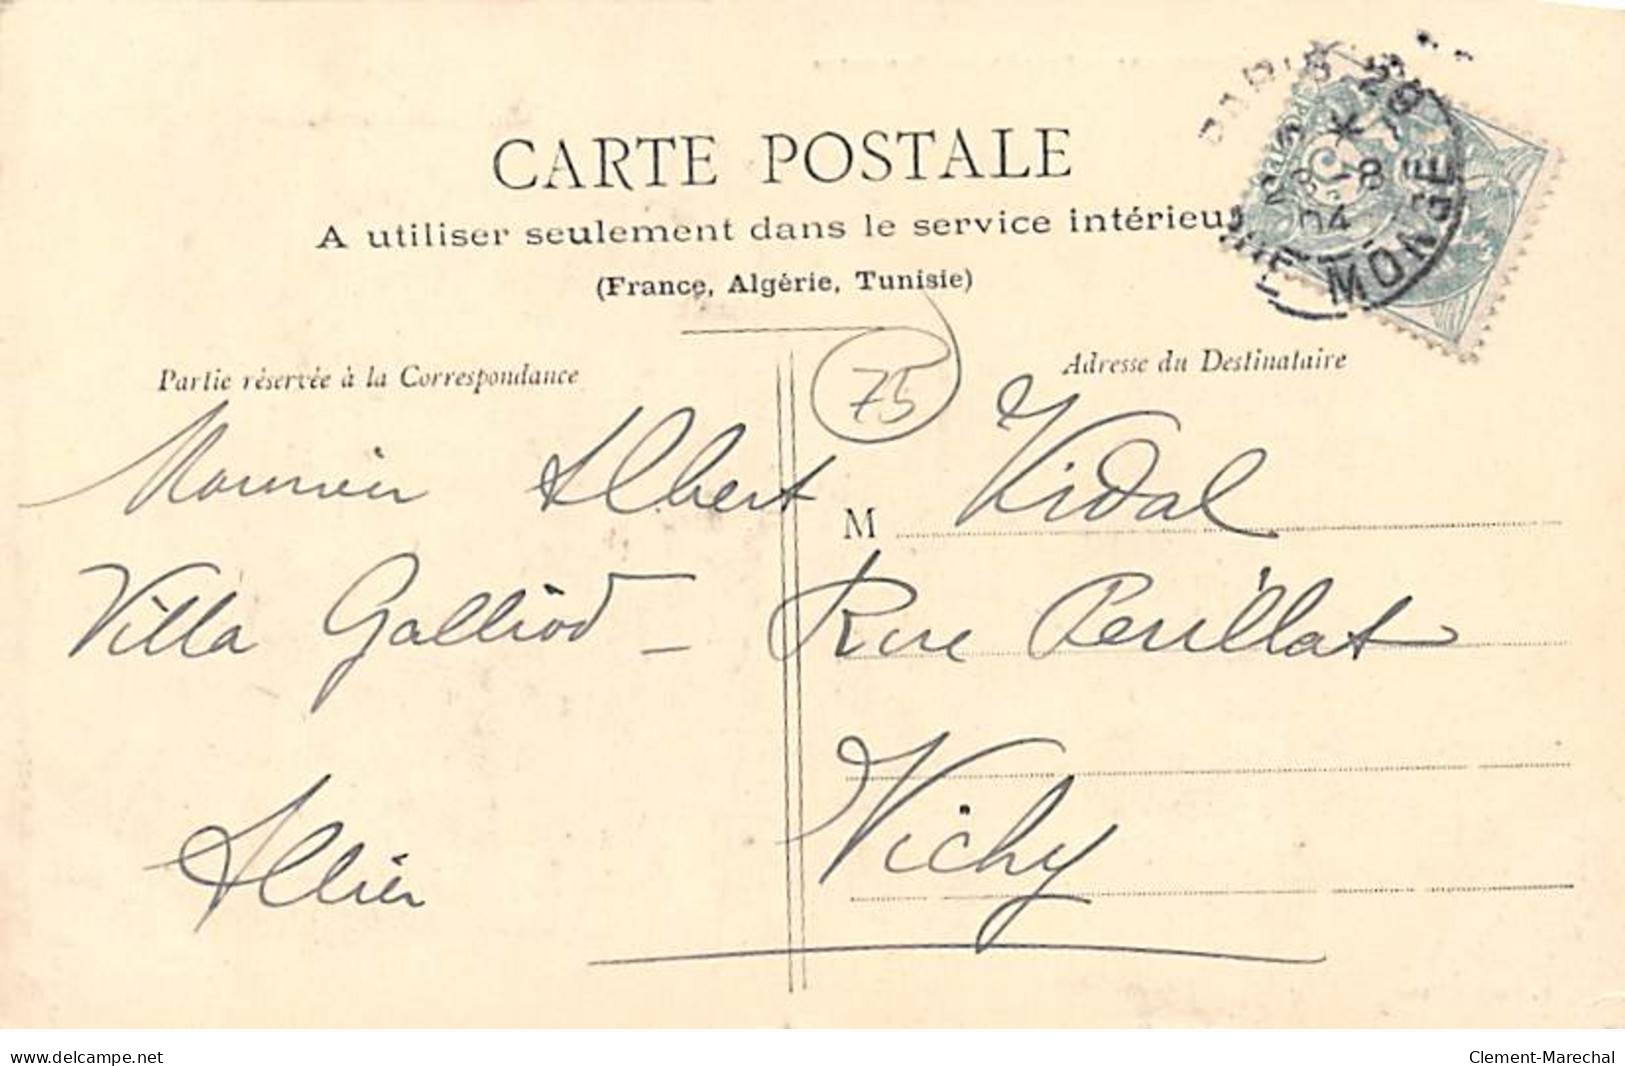 PARIS 29
*
8
04
RUE MONGE
CARTE POSTALE
A utiliser seulement dans le service intérieur
(France, Algérie, Tunisie)
75
Partie réservée à la Correspondance
Adresse du Destinataire
Monsieur Albert Vidal
M
Villa Galliod - Rue Perillat
Allier
Vichy
www.delcampe.net
Clement-Marechal